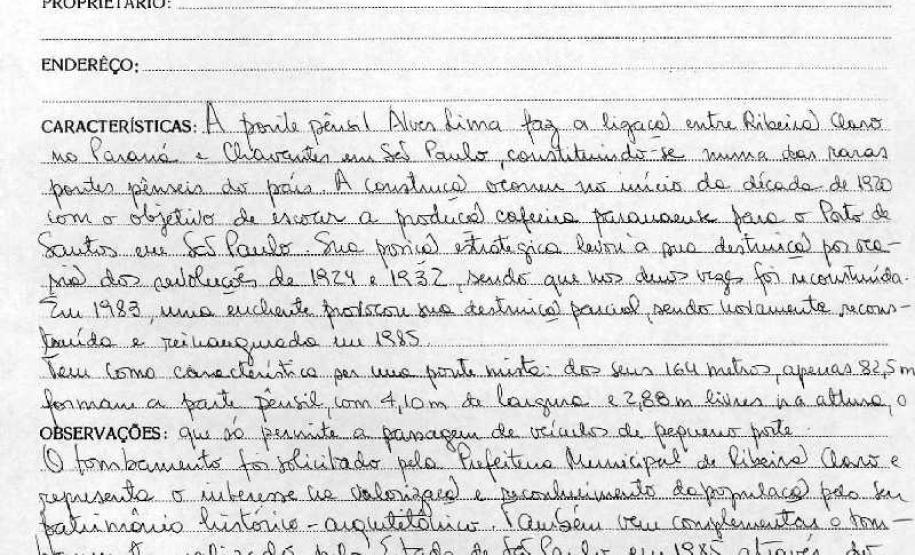 PROPRIETÁRIO:
ENDERÊÇO:
CARACTERÍSTICAS: A ponte pênsil Alves Lima faz a ligação entre Ribeirão Claro
no Paraná e Chavantes em São Paulo, constituindo-se numa das raras
pontes pênseis do país. A construção ocorreu no início da década de 1920
com o objetivo de escoar a produção cafeeira paranaense para o Porto de
Santos em São Paulo. Sua posição estratégica levou à sua destruição por oca-
sião das revoluções de 1924 e 1932, sendo que nos duas vezes foi reconstruída.
Em 1983, uma enchente provocou sua destruição parcial, sendo novamente recons-
truída e reinaugurada em 1985.
Tem como característica ser uma ponte mista: dos seus 164 metros, apenas 82,5 m
formam a parte pensil, com 4,10m de largura e 2,88 m livres na altura, o
OBSERVAÇÕES: que só permite a passagem de veículos de pequeno porte.
O tombamento foi solicitado pela Prefeitura Municipal de Ribeirão Claro e
representa o interesse na valorização e reconhecimento da população pelo seu
patrimônio histórico-arquitetônico. Também vem complementar o tom-
realizado pelo Estado de São Paulo em 1985 através do